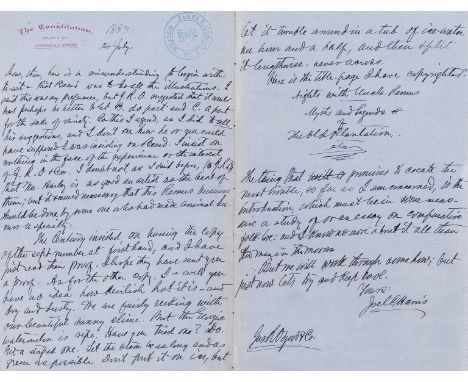 The Constitution,
ATLANTA, GA.
EDITORIAL ROOMS.
1883
24 July.
Now, then here is a misunderstanding to begin with.
to wit — that Beard was to do the illustrations. I
said this was my preference, but J. R. O. suggested that it would
not perhaps be better to let H. do part and C. a part
for the sake of variety. To this I agreed, as I did to all
his suggestions, and I don't see how he or you could
have supposed I was insisting on Beard. I insist on
nothing in the face of the experience or the interest
of J. R. O. & Co. I doubt not, as I said before, to J. R. O.
that Mr. Church is as good an artist as the best of
them; but it seemed necessary that this Remus business
should be done by some one who had made
The Century insisted on having the copy
of the sept. number at first hand, and I have
just read their proof. I hope they have sent you
a proof. As for the other copy, I
have no idea how devilish hot it is — and
dry and dusty. We are fairly reeking with
our beautiful sunny clime. But the Georgia
watermelon is ripe. Have you tried one? No.
Get a striped one. Let the stem be as long and as
green as possible. Don't put it on ice, but
let it tumble around in a tub of ice-water
an hour and a half, and then split
it lengthwise — never across.
Here is the title page I have copyrighted:
Nights with Uncle Remus
Myths and Legends
of
The Old Plantation.
The thing that promises to create the
most trouble, so far as I am concerned, is the
introduction, which must be in some meas-
ure a study of or an essay on comparative
folk-lore; and I know no more about it all than
the man in the moon.
But we will work through some how; but
just now let's try and keep cool.
Yours:
Joel C. Harris
Jas. R. Osgood & Co.